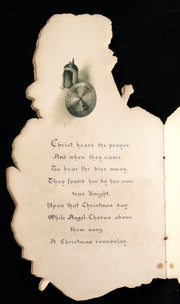 Christ heard the prayer,
And when they came
To bear the bier away,
They found her by her own
true Knight,
Upon that Christmas day.
While Angel Chorus above
them sang
A Christmas roundelay.